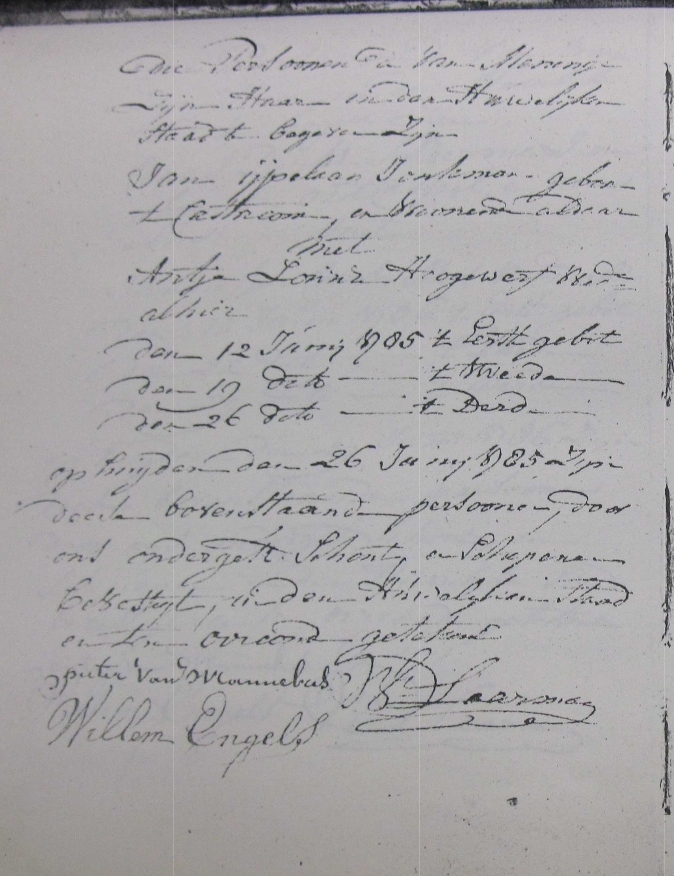 die Persoonen die van Mening
Zijn Haar in den Huwelijken
Staad te begeven Zijn
Jan ijpelaan Jonkman gebor
t Castricom, en Woonend aldaar
Met
Antje Lorinz Hoogewerf Wed
alhier
den 12 Junij 1785 't Eerste gebot
den 19 dito t Tweede
den 26 dito t Derde
op huijden den 26 Junij 1785 Zijn
deese bovenstaande persoonen, door
ons ondergeth. Schout, en Schepenen
bevestigt, in den Huwelijken Staad
en ten oirconde getekent
pieter van
Willem Engels